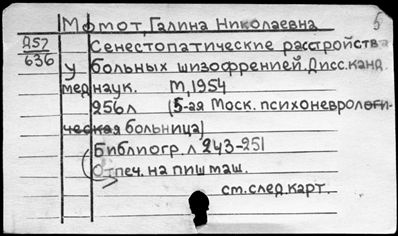 Момот, Галина Николаевна 5
Д57 Сенестопатические расстройства
636 у больных шизофренией. Дисс. канд.
мед наук. М, 1954
256л (5-ая Моск. психоневрологи-
ческая больница)
Библиогр. л 243-251
Отпеч. на пиш маш.
см. след карт.